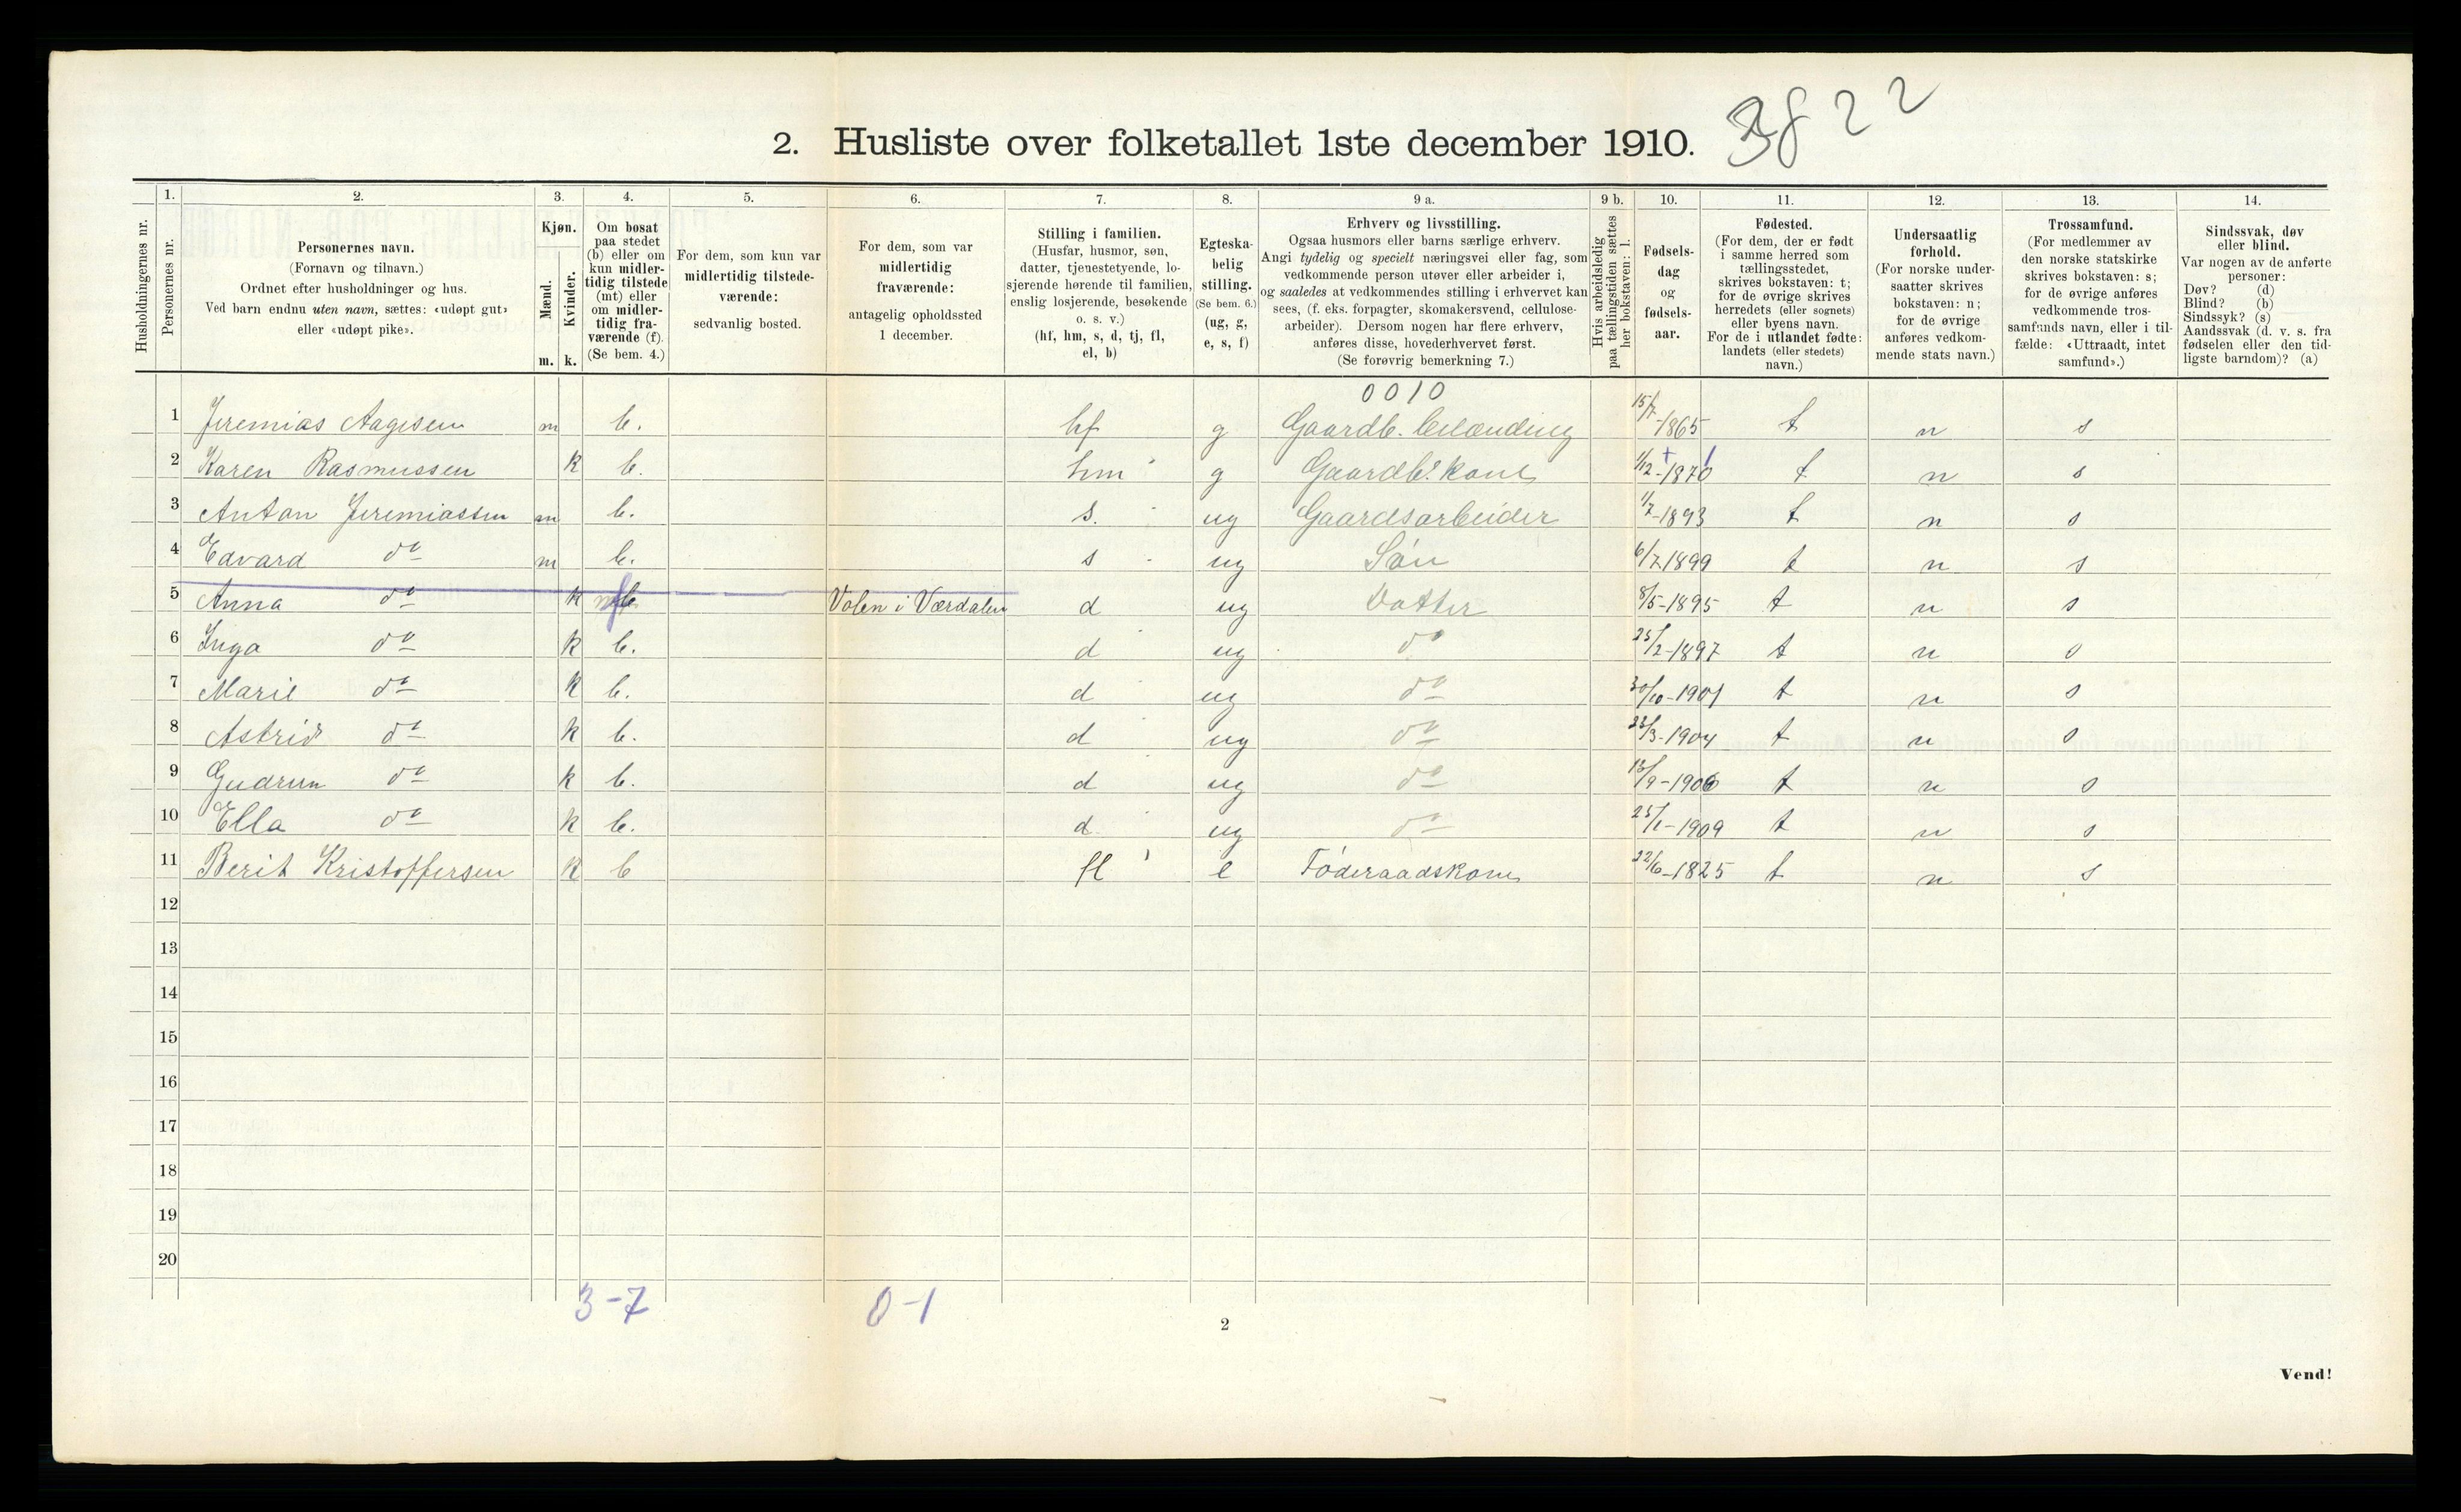 3822
2. Husliste over folketallet 1ste december 1910.
Husholdningernes nr.
1.
Personernes nr.
2.
Personernes navn.
(Fornavn og tilnavn.)
Ordnet efter husholdninger og hus.
Ved barn endnu uten navn, sættes: «udøpt gut»
eller «udøpt pike».
3.
Kjøn.
Mænd.
Kvinder.
m. k.
4.
Om bosat
paa stedet
(b) eller om
kun midler-
tidig tilstede
(mt) eller
om midler-
tidig fra-
værende (f).
(Se bem. 4.)
5.
For dem, som kun var
midlertidig tilstede-
værende:
sedvanlig bosted.
6.
For dem, som var
midlertidig
fraværende:
antagelig opholdssted
1 december.
7.
Stilling i familien.
(Husfar, husmor, søn,
datter, tjenestetyende, lo-
sjerende hørende til familien,
enslig losjerende, besøkende
o. s. v.)
(hf, hm, s, d, tj, fl,
el, b)
8.
Egteska-
belig
stilling.
(Se bem. 6.)
(ug, g,
e, s, f)
9 a.
Erhverv og livsstilling.
Ogsaa husmors eller barns særlige erhverv.
Angi tydelig og specielt næringsvei eller fag, som
vedkommende person utøver eller arbeider i,
og saaledes at vedkommendes stilling i erhvervet kan
sees, (f. eks. forpagter, skomakersvend, cellulose-
arbeider). Dersom nogen har flere erhverv,
anføres disse, hovederhvervet først.
(Se forøvrig bemerkning 7.)
9 b.
Hvis arbeidsledig
paa tællingstiden sættes
her bokstaven: l.
10.
Fødsels-
dag
og
fødsels-
aar.
11.
Fødested.
(For dem, der er født
i samme herred som
tællingsstedet,
skrives bokstaven: t;
for de øvrige skrives
herredets (eller sognets)
eller byens navn.
For de i utlandet fødte:
landets (eller stedets)
navn.)
12.
Undersaatlig
forhold.
(For norske under-
saatter skrives
bokstaven: n;
for de øvrige
anføres vedkom-
mende stats navn.)
13.
Trossamfund.
(For medlemmer av
den norske statskirke
skrives bokstaven: s;
for de øvrige anføres
vedkommende tros-
samfunds navn, eller i til-
fælde: «Uttraadt, intet
samfund».)
14.
Sindssvak, døv
eller blind.
Var nogen av de anførte
personer:
Døv? (d)
Blind? (b)
Sindssyk? (s)
Aandssvak (d. v. s. fra
fødselen eller den tid-
ligste barndom)? (a)
0010
1 Jeremias Aagesen m b. hf g Gaardb. 15/7-1865 t n s
2 Karen Rasmussen k b. hm g Gaardbs. kone 1/12-1870 t n s
3 Anton Jeremiassen m b. s. ug Gaardsarbeider 1/7-1893 t n s
4 Edvard do m b. s ug Søn 6/7 1899 t n s
5 Anna do k f Volen i Værdalen d ug Datter 8/5-1895 t n s
6 Inga do k b. d ug do 25/2-1897 t n s
7 Marie do k b. d ug do 30/10-1901 t n s
8 Astrid do k b. d ug do 23/3-1904 t n s
9 Gudrun do k b. d ug do 13/9-1906 t n s
10 Ella do k b. d ug do 25/1-1909 t n s
11 Berit Kristoffersen k b fl e Føderaadskone 22/6-1825 t n s
12
13
14
15
16
17
18
19
20
3-7 0-1
2
Vend!